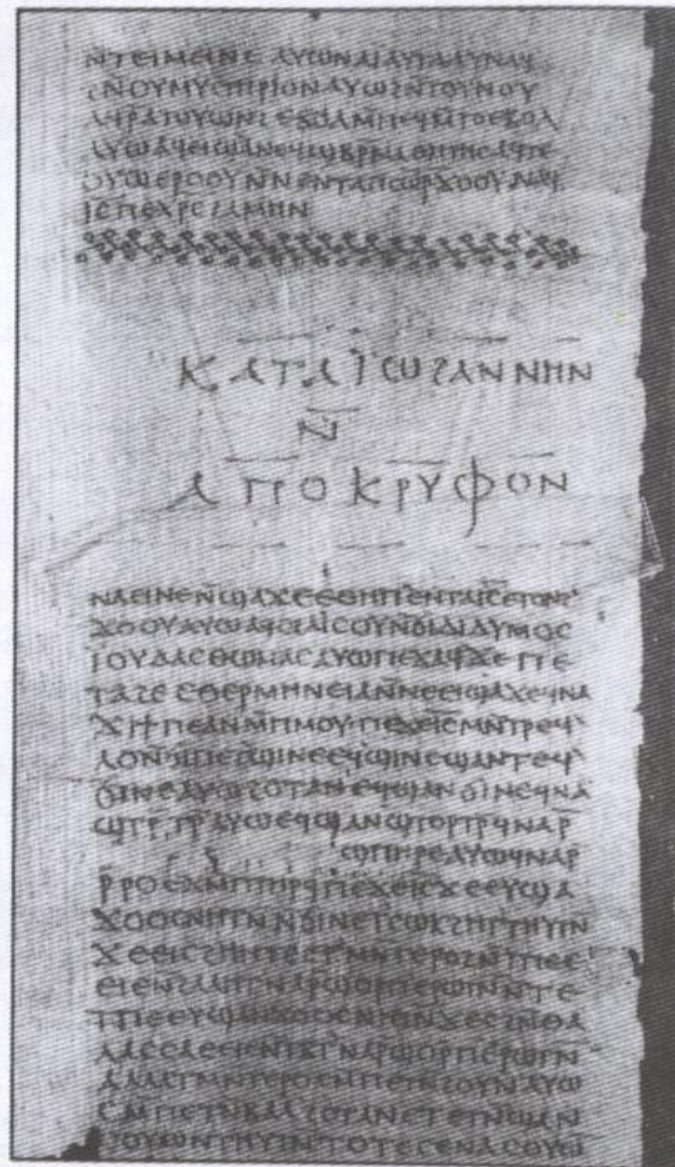 ⲛⲧⲉⲉⲓⲙⲉⲓⲛⲉⲁⲩⲱⲛⲁⲓⲁⲩⲧⲁⲁⲩⲛⲁϥ
ϩⲛⲟⲩⲙⲩⲥⲧⲏⲣⲓⲟⲛⲁⲩⲱϩⲛ̄ⲧⲟⲩⲛⲟⲩ
ⲁϥⲣ̄ⲁⲧⲟⲩⲱⲛϩⲉⲃⲟⲗⲙ̄ⲡⲉϥⲙ̄ⲧⲟⲉⲃⲟⲗ
ⲁⲩⲱⲁϥⲉⲓϣⲁⲛⲉϥϣⲃⲣⲙⲁⲑⲏⲧⲏⲥⲁϥⲧⲉ
ⲟⲩⲱⲉⲣⲟⲟⲩⲛ̄ⲛⲉⲛⲧⲁⲡⲥⲱ̄ⲣ̄ϫⲟⲟⲩⲛⲁϥ
ⲓ̄ⲥ̄ⲡⲉⲭⲣ̄ⲥ̄ϩⲁⲙⲏⲛ
ⲕⲁⲧⲁⲓ̈ⲱϩⲁⲛⲛⲏⲛ
ⲛ̄
ⲁⲡⲟⲕⲣⲩⲫⲟⲛ
ⲛⲁⲉⲓⲛⲉⲛ̄ϣⲁϫⲉⲉⲑⲏⲡ`ⲉⲛⲧⲁⲓ̄ⲥ̄ⲉⲧⲟⲛϩ
ϫⲟⲟⲩⲁⲩⲱⲁϥⲥϩⲁⲓⲥⲟⲩⲛ̄ϭⲓⲇⲓⲇⲩⲙⲟⲥ
ⲓ̈ⲟⲩⲇⲁⲥⲑⲱⲙⲁⲥⲁⲩⲱⲡⲉϫⲁϥϫⲉⲡⲉ
ⲧⲁϩⲉⲉⲑⲉⲣⲙⲏⲛⲉⲓⲁⲛ̄ⲛⲉⲉⲓϣⲁϫⲉϥⲛⲁ
ϫⲓϯⲡⲉⲁⲛⲙ̄ⲡⲙⲟⲩⲡⲉϫⲉⲓ̄ⲥ̄ⲙⲛ̄ⲧⲣⲉϥ`
ⲗⲟⲛ̄ϭⲓⲡⲉⲧϣⲓⲛⲉⲉϥϣⲓⲛⲉϣⲁⲛⲧⲉϥ`
ϭⲓⲛⲉⲁⲩⲱϩⲟⲧⲁⲛⲉϥϣⲁⲛϭⲓⲛⲉϥⲛⲁ
ϣⲧⲣ̄ⲧⲣ̄ⲁⲩⲱⲉϥϣⲁⲛϣⲧⲟⲣⲧⲣ̄ϥⲛⲁⲣ̄
ϣⲡⲏⲣⲉⲁⲩⲱϥⲛⲁⲣ̄
ⲣ̄ⲣⲟⲉϫⲙ̄ⲡⲧⲏⲣϥⲡⲉϫⲉⲓ̄ⲥ̄ϫⲉⲉⲩϣⲁ
ϫⲟⲟⲥⲛⲏⲧⲛ̄ⲛ̄ϭⲓⲛⲉⲧⲥⲱⲕϩⲏⲧⲧⲏⲩⲧⲛ̄
ϫⲉⲉⲓⲥϩⲏⲏⲧⲉⲉⲧⲙⲛ̄ⲧⲉⲣⲟϩⲛ̄ⲧⲡⲉⲉ
ⲉⲓⲉⲛ̄ϩⲁⲗⲏⲧⲛⲁⲣ̄ϣⲟⲣⲡⲉⲣⲱⲧⲛ̄ⲛ̄ⲧⲉ
ⲧⲡⲉⲉⲩϣⲁⲛϫⲟⲟⲥⲛⲏⲧⲛ̄ϫⲉⲥϩⲛ̄ⲑⲁ
ⲗⲁⲥⲥⲁⲉⲉⲓⲉⲛ̄ⲧⲃⲧ`ⲛⲁⲣ̄ϣⲟⲣⲡⲉⲣⲱⲧⲛ̄
ⲁⲗⲗⲁⲧⲙⲛ̄ⲧⲉⲣⲟⲥⲙ̄ⲡⲉⲧⲛ̄ϩⲟⲩⲛⲁⲩⲱ
ⲥⲙ̄ⲡⲉⲧⲛ̄ⲃⲁⲗϩⲟⲧⲁⲛⲉⲧⲉⲧⲛ̄ϣⲁⲛ
ⲥⲟⲩⲱⲛⲧⲏⲩⲧⲛ̄ⲧⲟⲧⲉⲥⲉⲛⲁⲥⲟⲩⲱ